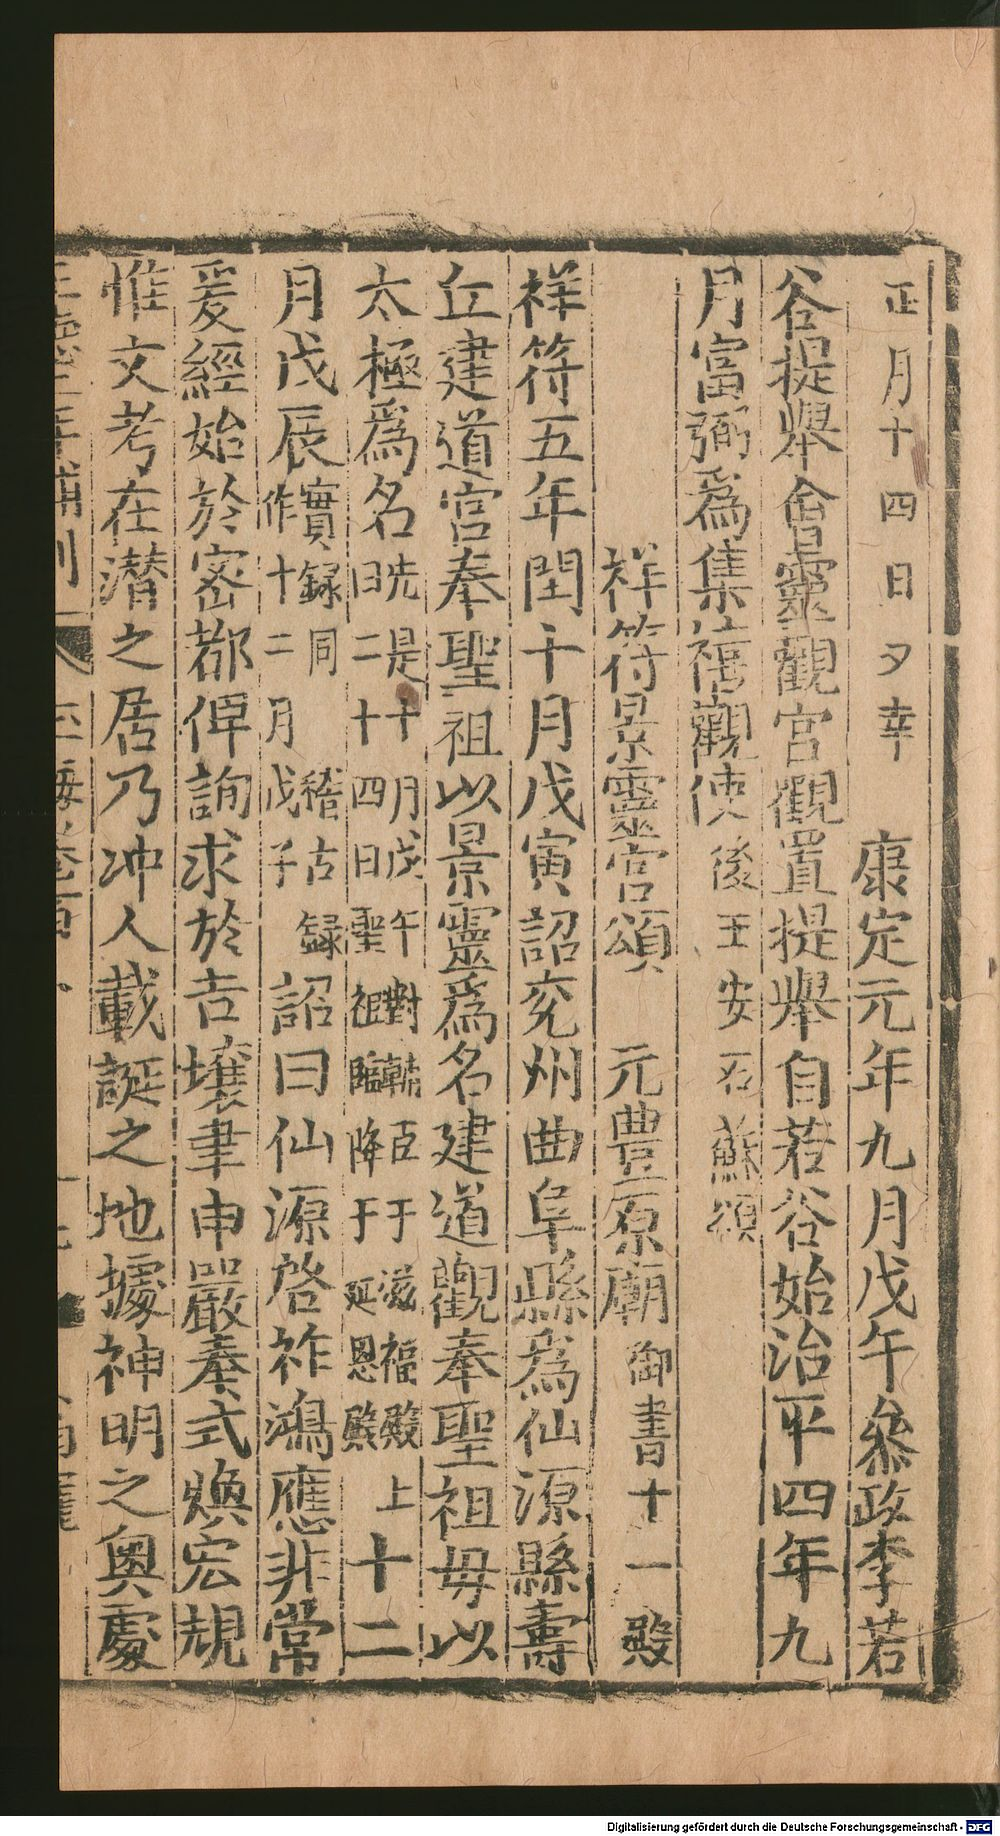 正月十四日夕幸　康定元年九月戊午叅政李若
谷提舉會靈觀宮觀置提舉自若谷始治平四年九
月富弼爲集禧觀使後王安石蘇頌
祥符景靈宮頌　元豊原廟御書十一殿
祥符五年閏十月戊寅詔兖州曲阜縣爲仙源縣壽
丘建道宮奉聖祖以景靈爲名建道觀奉聖祖母以
太極爲名先是十月戊午對輔臣于滋福殿上曰二十四日聖祖臨降于延恩殿十二
月戊辰實錄同稽古錄作十二月戊子詔曰仙源啓祚鴻應非常
爰經始於宻都俾詢求於吉壤聿申嚴奉式煥宏規
惟文考在潜之居乃冲人載誕之地據神明之奥處
Digitalisierung gefördert durch die Deutsche Forschungsgemeinschaft - DFG